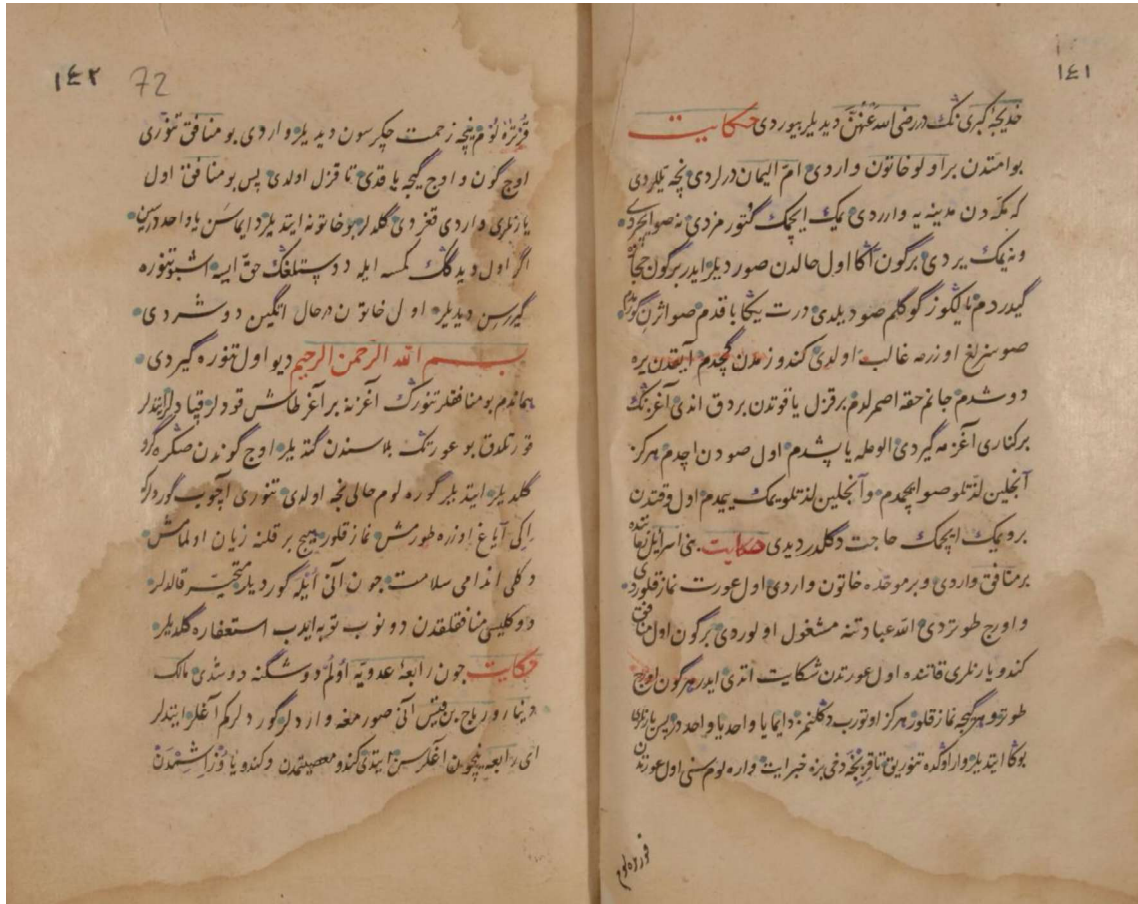 ١٤١
خديجۀ كبرى نك در رضى الله عنهن ديديلر بيوردى حكايت
بو امتدن بر اولو خاتون واردى ام اليمان درلردى نچه ييلردى
كه مكه دن مدينه يه واردى يمك ايچمك گتورمزدى نه صو ايچردى
ونه يمك يردى برگون اكا اول حالدن صورديلر ايدر برگون حجه
گيدردم يالكوز گوكلم صو ديلدى درت ينكا باقدم صو اثرن گورمدم
صوسزلغ اوزرمه غالب اولدى كندوزمدن گچدم آيقدن يره
دوشدم جانم حقه اصمرلدم بر قزل ياقوتدن بردق اندى آغزنك
بر كنارى آغزمه گيردى الومله ياپشدم اول صودن اچدم هركز
آنجلين لذتلو صو ايچمدم وآنجلين لذتلو يمك ييمدم اول وقتدن
برو يمك ايچمك حاجت دگلدر ديدى حكايت بنى اسرائيل زماننده
بر منافق واردى وبر موحده خاتون واردى اول عورت نماز قلوردى
واورج طوتردى الله عبادتنه مشغول اولوردى برگون اول منافق
كندو يارنلرى قاتنده اول عورتدن شكايت اتدى ايدر هرگون اورج
طوتر وهر گيجه نماز قلور هركز اوتورب دكلنمز دايما يا واحد يا واحد در پس يارنلرى
بوكا ايتديلر وار اوكده تنورى قزنجه دخى بزه خبر ايت واره لوم سنى اول عورتدن
قورتره لوم
١٤٢ 72
قورتره لوم نيجه زحمت چكرسون ديديلر واردى بو منافق تنورى
اوج گون و اوج گيجه ياقدى تا قزل اولدى پس بو منافق اول
يارنلرى واردى قغردى گلدلر بو خاتونه ايتديلر دايما سن يا واحد درسن
اگر اول ديدگك كمسه ايله دوستلغك حق ايسه اشبو تنوره
گيررسن ديديلر اول خاتون درحال اتگين دوشردى
بسم الله الرحمن الرحيم ديو اول تنوره گيردى
هماندم بو منافقلر تنورك آغزنه بر آغر طاش قودلر قپادلر ايتدلر
قورتلدق بو عورتك بلاسندن گتديلر اوج گوندن صكره گرو
گلديلر ايتديلر گوره لوم حالى نجه اولدى تنورى آچوب گوردلركه
ايكى آياغ اوزره طورمش نماز قلور هيج بر قلنه زيان اولمامش
دكلى اندامى سلامت چون انى ايله گورديلر متحير قالدلر
دوكليسى منافقلقدن دونوب توبه ايدب استغفاره گلديلر
حكايت چون رابعۀ عدويه اولم دوشگنه دوشدى مالك
دينار و رباح بن قيس انى صورمغه واردلر گوردلركم آغلر ايتدلر
اى رابعه نيچون آغلرسن ايتدى كندو معصيتمدن وكندو ياوز اشمدن